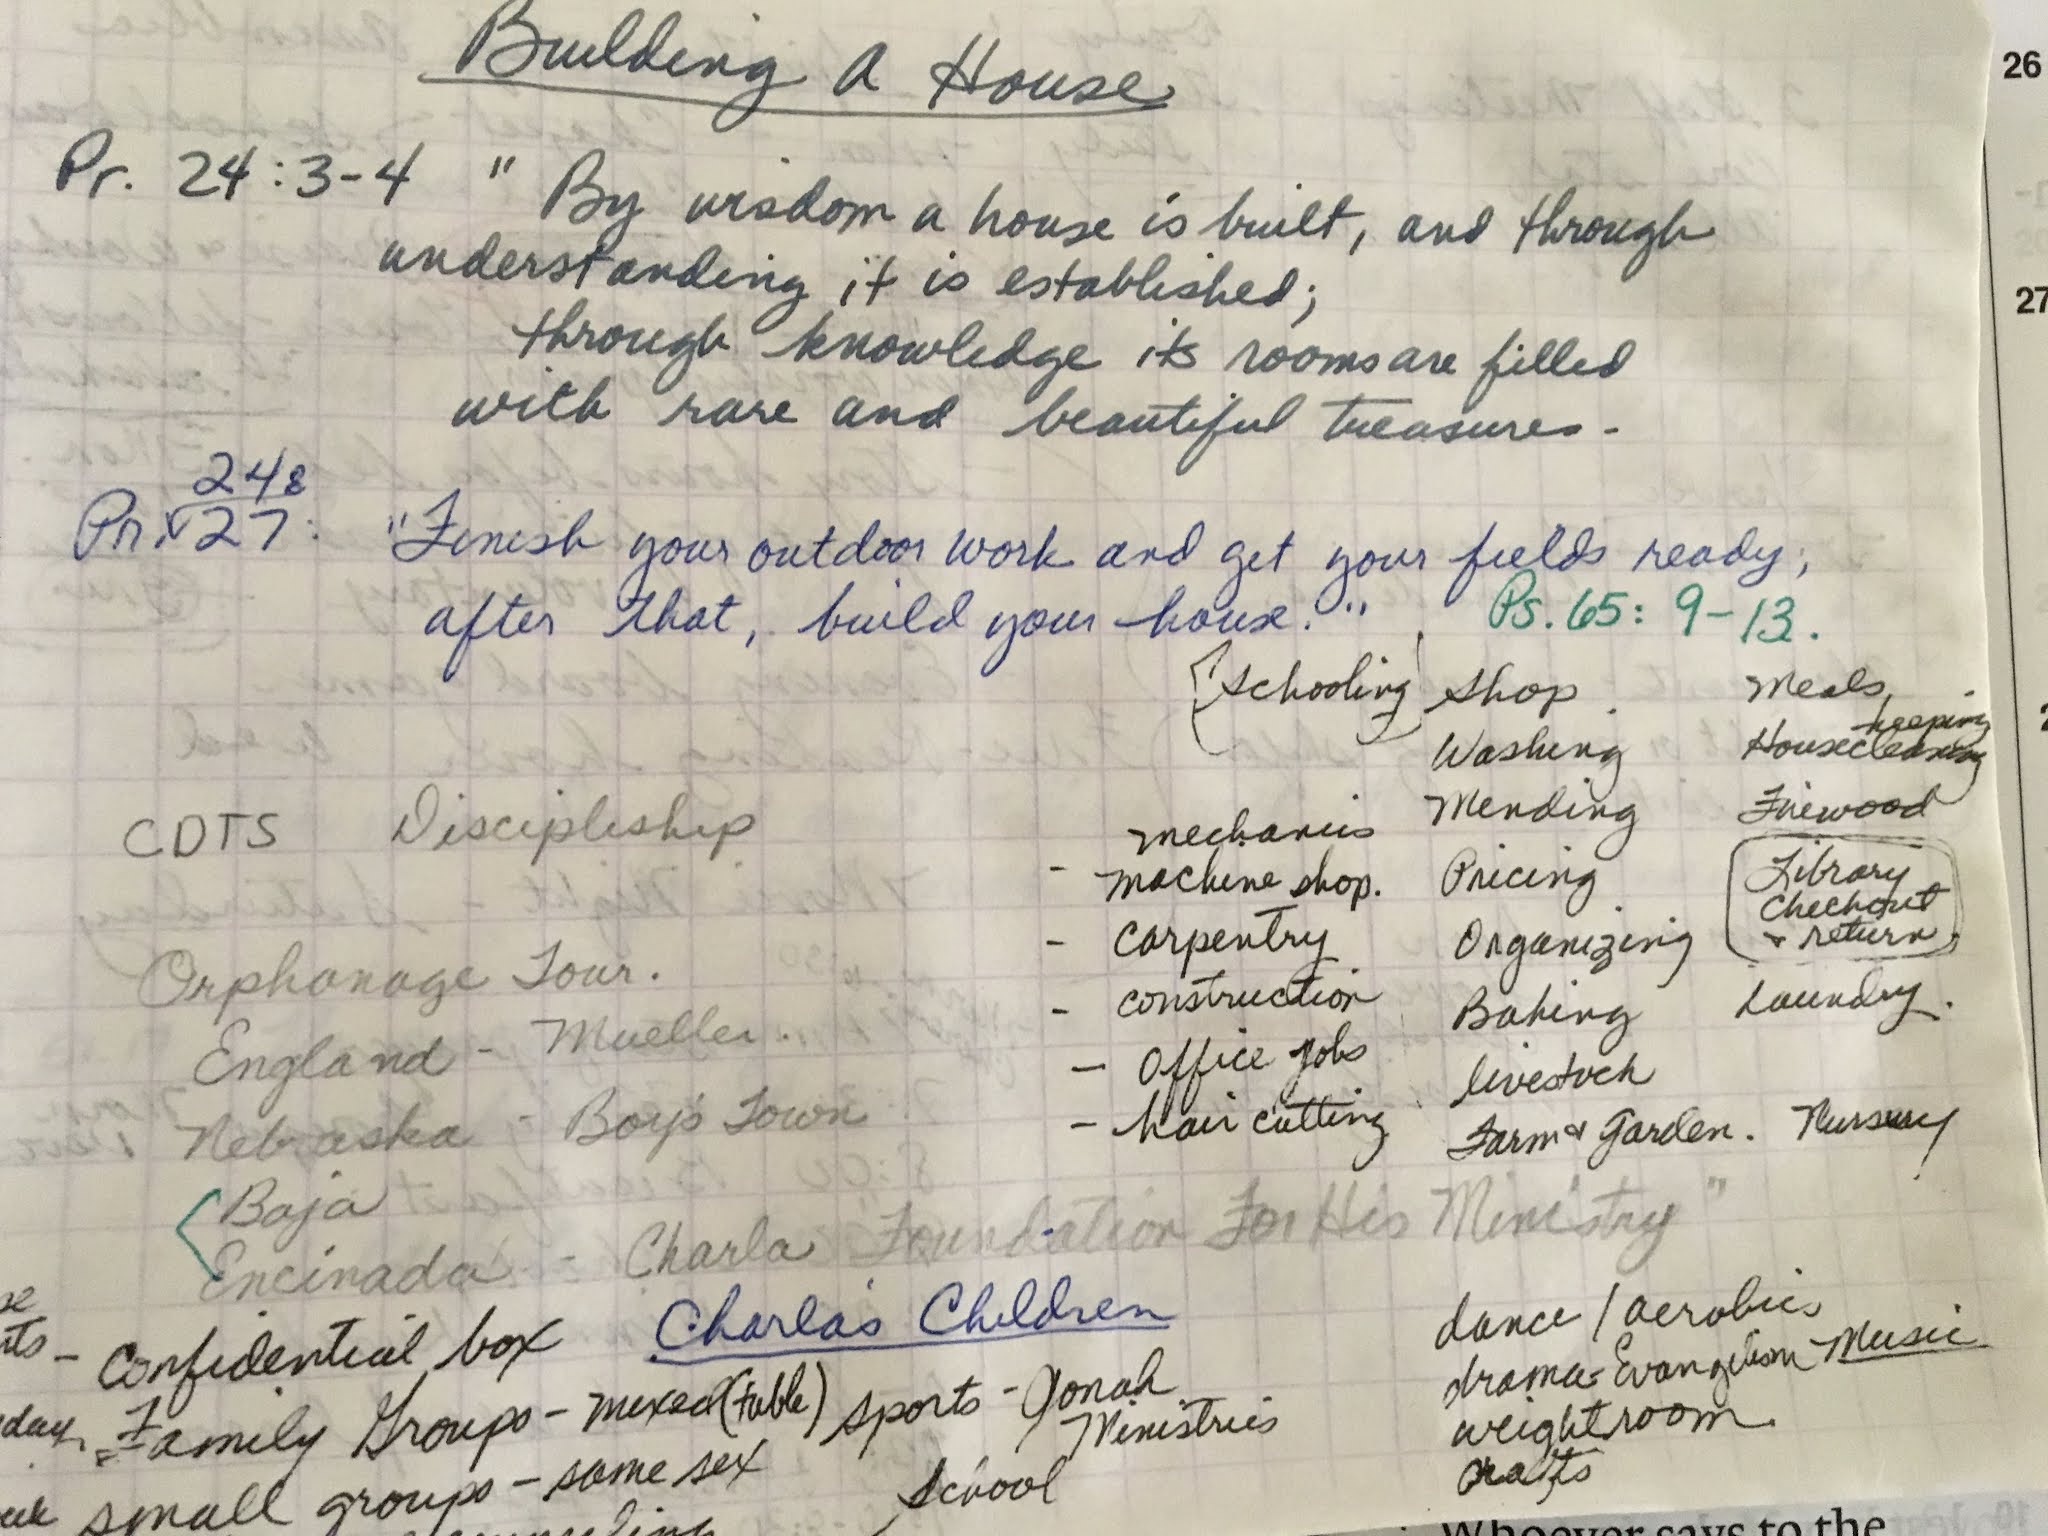 Building A House
Pr. 24:3-4 " By wisdom a house is built, and through
understanding it is established;
through knowledge its rooms are filled
with rare and beautiful treasures.
24:
Pr. 27: "Finish your outdoor work and get your fields ready;
after that, build your house."
Ps. 65: 9-13.
Schooling
Shop
Washing
Mending
Pricing
Organizing
Baking
livestock
Farm & Garden.
Meals,
keeping
Housecleaning
Firewood
Library
Checkout
& return.
Laundry.
Nursery
mechanics
- machine shop.
- carpentry
- construction
- Office jobs
- hair cutting
CDTS Discipleship
Orphanage Tour.
England - Mueller.
Nebraska - Boys Town
Baja
Encinada - Charla Foundation For His Ministry"
- confidential box
Charla's Children
Family Groups - mixed (table)
small groups - same sex
sports - Jonah
Ministries
School
dance / aerobics
drama - Evangelism Music
weightroom
crafts
26
27
Whoever says to the